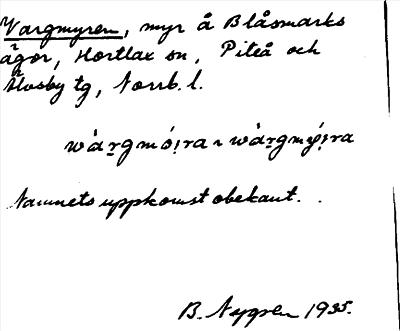 Vargmyren, myr å Blåsmarks
ägor, Hortlax sn, Piteå och
Älvsby tg, Norrb. l.
wàrgmó̩ira ~ wàrgmý̩ira
Namnets uppkomst obekant.
B. Nygren 1935.